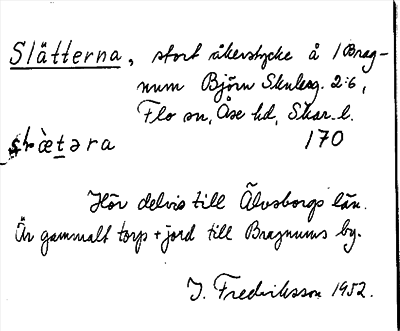 Slätterna, stort åkerstycke å 1 Brag-
num Björn Skuleg. 2:6,
Flo sn, Åse hd, Skar. l.
slæ̀təra 170
Hör delvis till Älvsborgs län.
Är gammalt torp + jord till Bragnums by.
J. Fredriksson 1952.